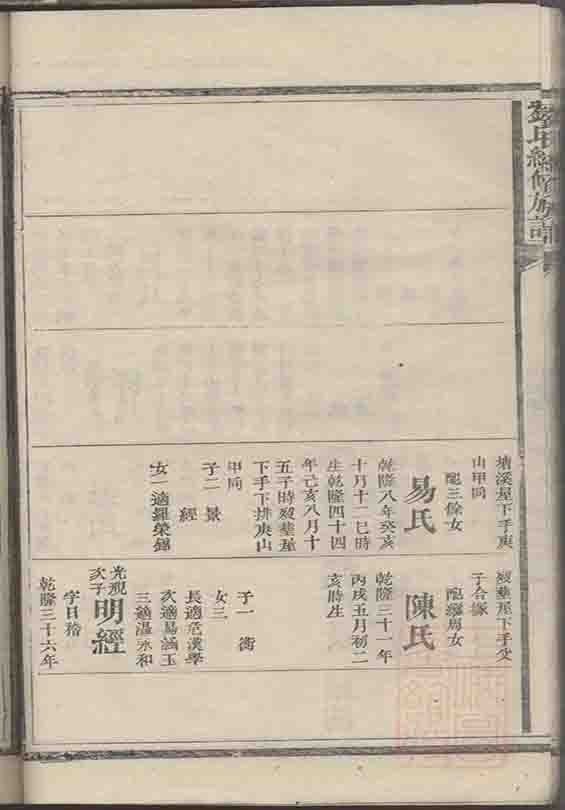 氏續修族譜
塘溪屋下手庚
山甲向
配三餘女
易氏
乾隆八年癸亥
十月十二巳時
生乾隆四十四
年己亥八月十
五子時歿葬屋
下手下排庚山
甲向
子二 景
經
女一適羅榮錦
歿葬屋下手父
子合塚
陳氏
乾隆三十一年
丙戌五月初二
亥時生
子一 衡
女三
長適危漢學
次適易涵玉
三適溫永和
光現
次子
明經
字日稽
乾隆三十六年